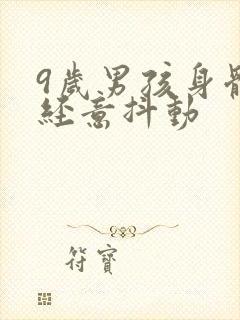 9歲男孩身體
經意抖動
符寶